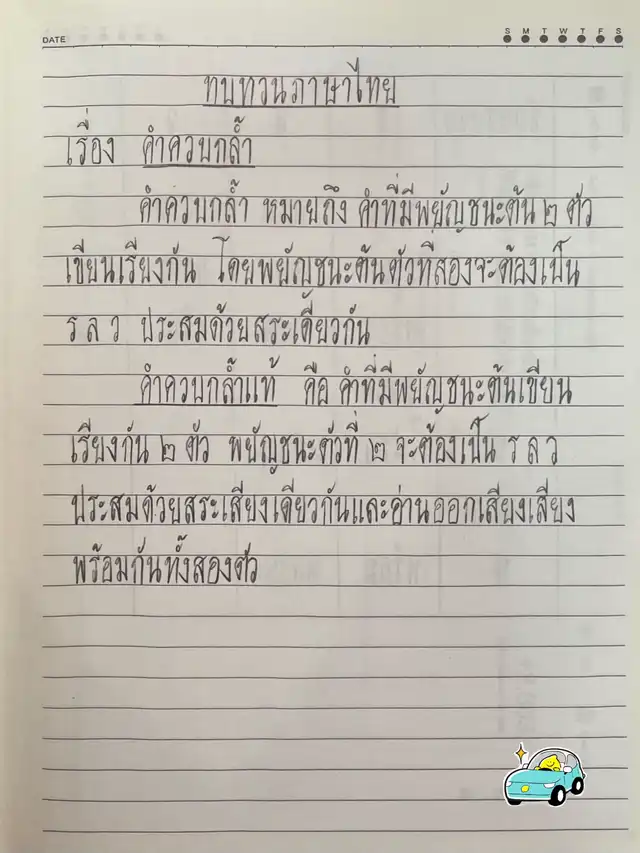 DATE
S M T W T F S
ทบทวนภาษาไทย
เรื่อง คำควบกล้ำ
คำควบกล้ำ หมายถึง คำที่มีพยัญชนะต้น ๒ ตัว
เขียนเรียงกัน โดยพยัญชนะต้นตัวที่สองจะต้องเป็น
ร ล ว ประสมด้วยสระเดี่ยวกัน
คำควบกล้ำแท้ คือ คำที่มีพยัญชนะต้นเขียน
เรียงกัน ๒ ตัว พยัญชนะตัวที่ ๒ จะต้องเป็น ร ล ว
ประสมด้วยสระเสียงเดียวกันและอ่านออกเสียงเสียง
พร้อมกันทั้งสองตัว